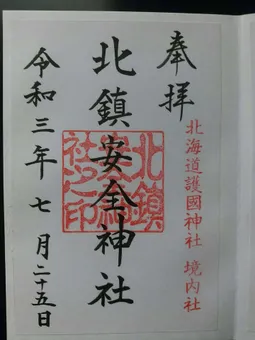 奉拝
北海道護國神社 境内社
北鎮安全神社
令和三年七月二十五日